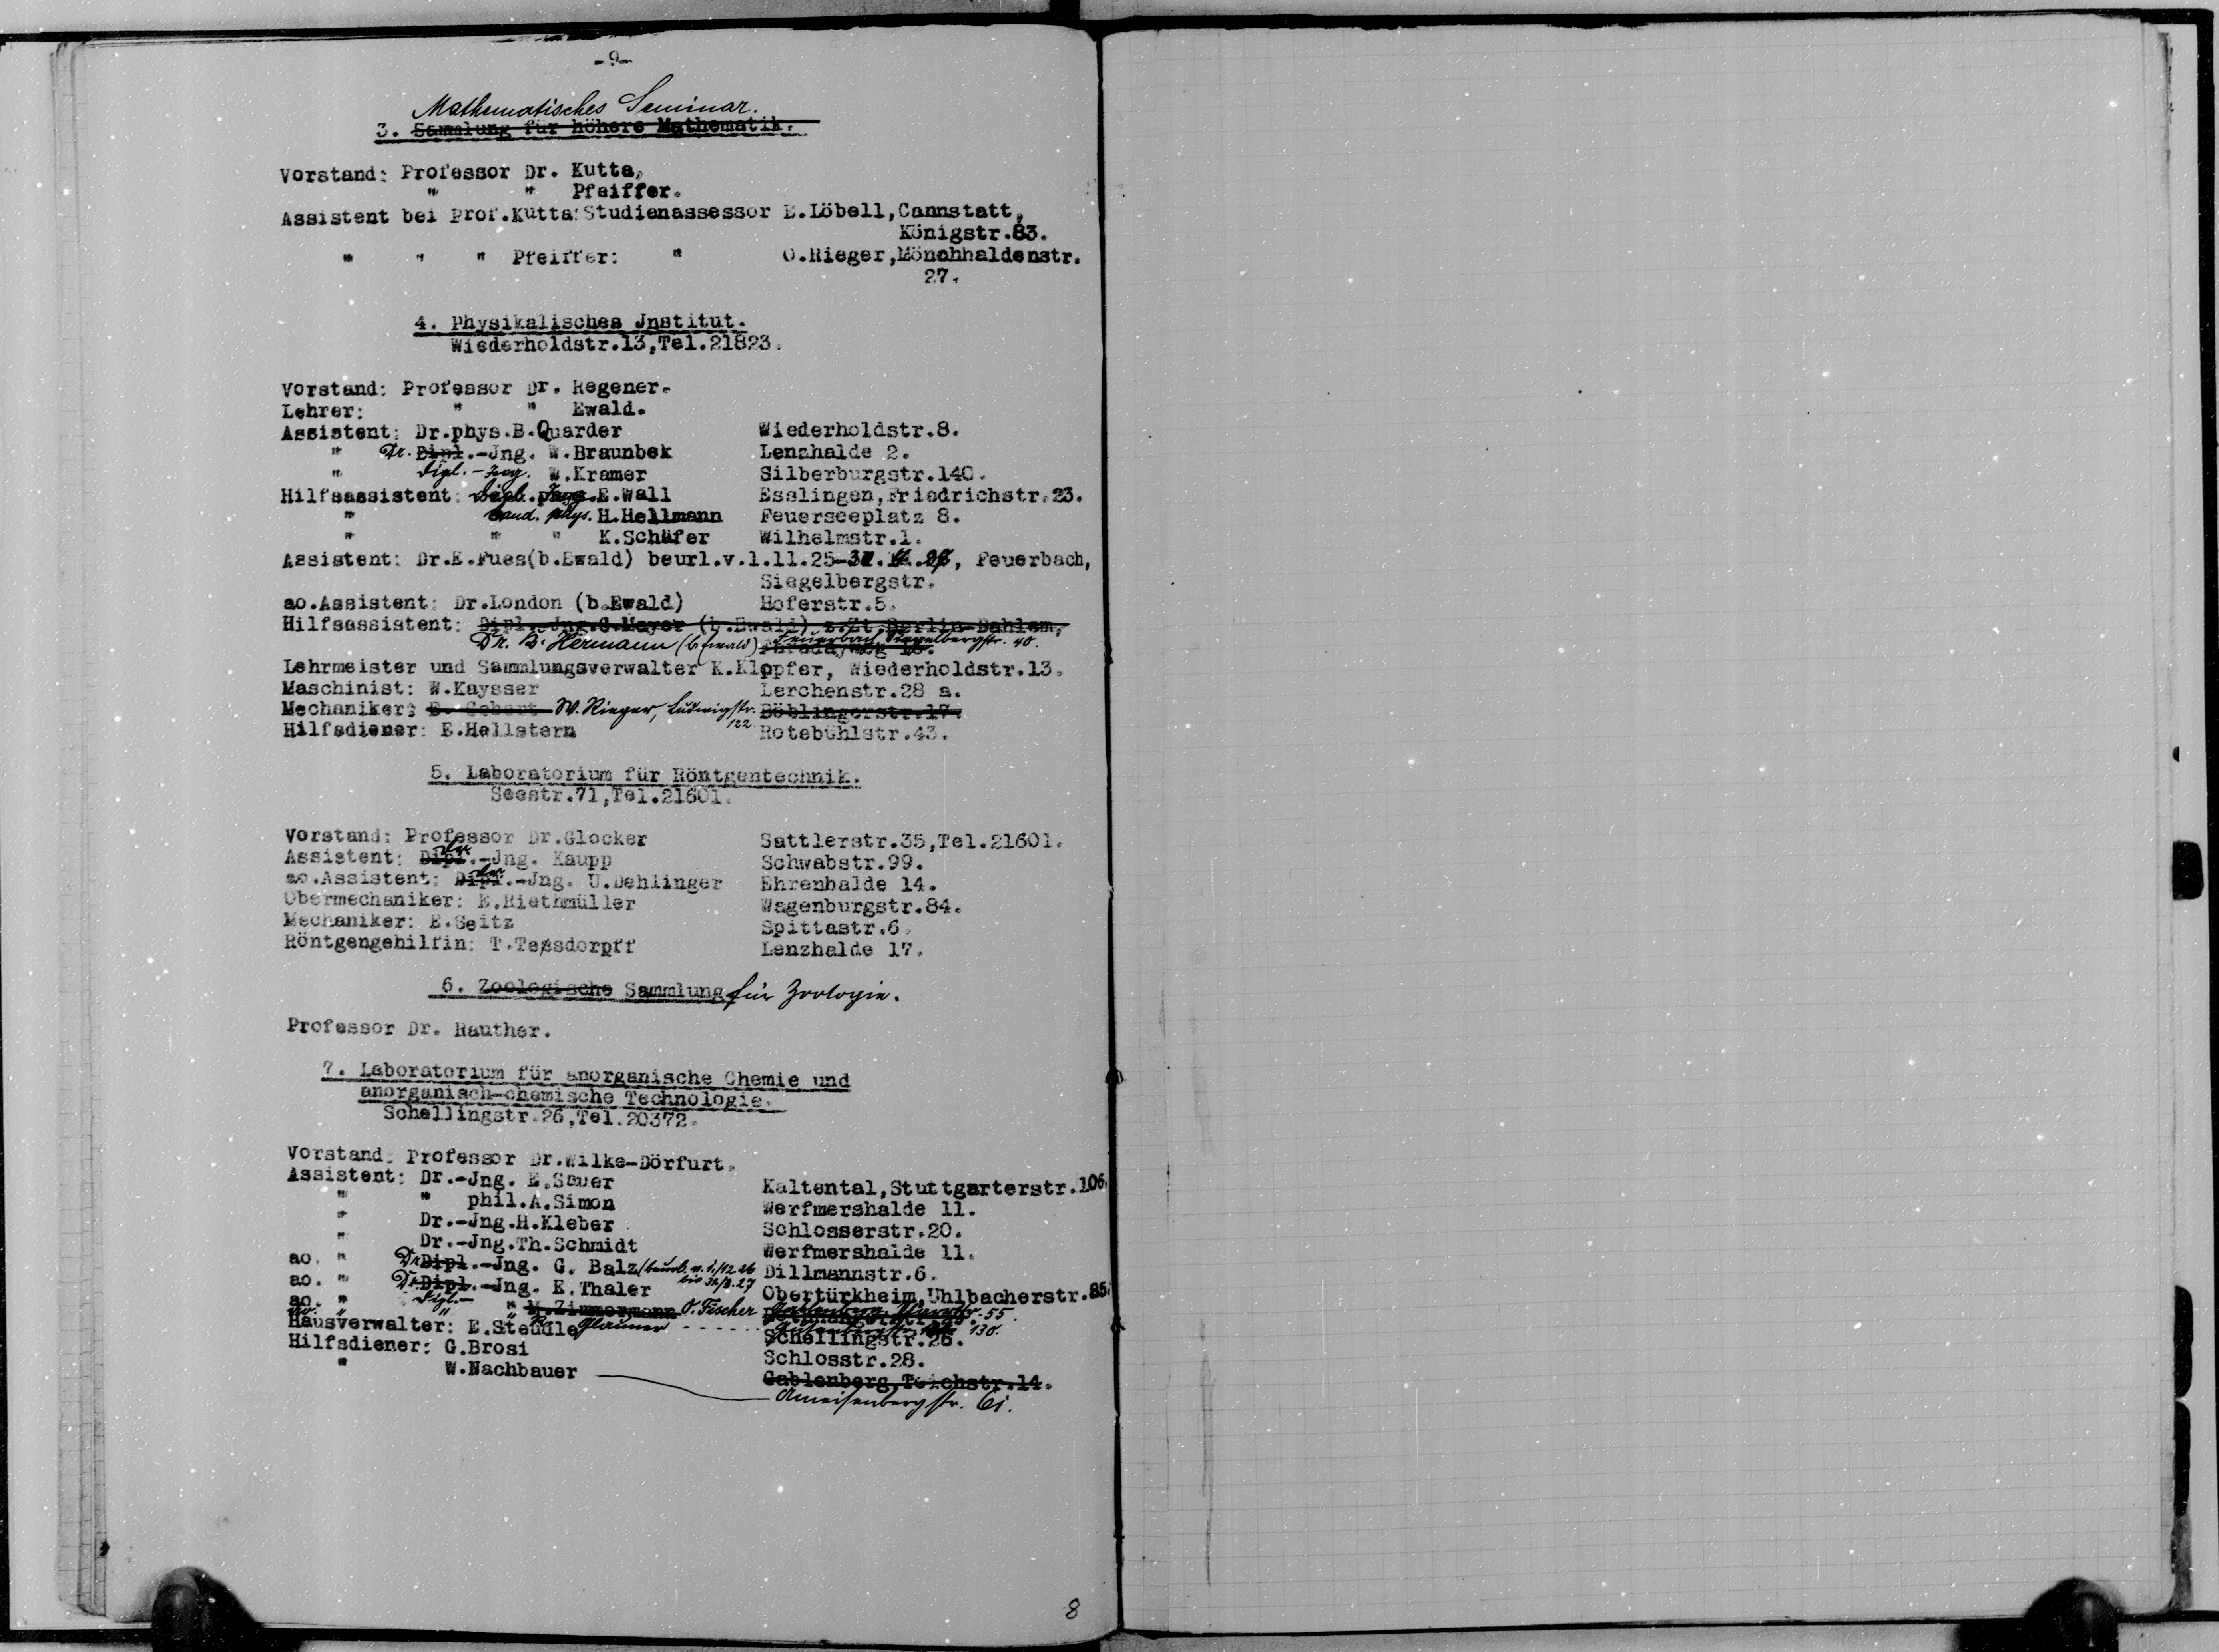 -9-
Mathematisches Seminar.
3. Sammlung für höhere Mathematik.
Vorstand: Professor Dr. Kutta,
" " Pfeiffer.
Assistent bei Prof.Kutta:Studienassessor E.Löbell,Cannstatt,
Königstr.83.
" " " Pfeiffer: " O.Rieger,Mönchhaldenstr.
27.
4. Physikalisches Jnstitut.
Wiederholdstr.13,Tel.21823.
Vorstand: Professor Dr. Regener.
Lehrer: " " Ewald.
Assistent: Dr.phys.B.Quarder Wiederholdstr.8.
" Dr. Dipl.-Jng. W.Braunbek Lenzhalde 2.
" Dipl.-Ing. W.Kramer Silberburgstr.140.
Hilfsassistent: Dipl. E.Wall Esslingen,Friedrichstr.23.
" cand. phys. H.Hellmann Feuerseeplatz 8.
" " " K.Schäfer Wilhelmstr.1.
Assistent: Dr.E.Fues(b.Ewald) beurl.v.1.11.25- , Feuerbach,
Siegelbergstr.
ao.Assistent: Dr.London (b.Ewald) Hoferstr.5.
Hilfsassistent: Dipl.-Jng.G.Mayer (b.Ewald) z.Zt.Berlin-Dahlem,
Dr. Hermann (b. Ewald) Feuerbach, Siegelbergstr. 40.
Lehrmeister und Sammlungsverwalter K.Klopfer, Wiederholdstr.13.
Maschinist: W.Kaysser Lerchenstr.28 a.
Mechaniker: W. Rieger, Ludwigstr. 122. Böblingerstr.17.
Hilfsdiener: E.Hallstern Rotebühlstr.43.
5. Laboratorium für Röntgentechnik.
Seestr.71,Tel.21601.
Vorstand: Professor Dr.Glocker Sattlerstr.35,Tel.21601.
Assistent: Dipl. Dr.-Jng. Kaupp Schwabstr.99.
ao.Assistent: Dipl. Dr.-Jng. U.Dehlinger Ehrenhalde 14.
Obermechaniker: E.Riethmüller Wagenburgstr.84.
Mechaniker: E.Seitz Spittastr.6.
Röntgengehilfin: T.Tessdorpff Lenzhalde 17.
6. Zoologische Sammlung für Zoologie.
Professor Dr. Rauther.
7. Laboratorium für anorganische Chemie und
anorganisch-chemische Technologie.
Schellingstr.26,Tel.20372.
Vorstand: Professor Dr.Wilke-Dörfurt.
Assistent: Dr.-Jng. E.Sauer Kaltental,Stuttgarterstr.106.
" " phil.A.Simon Werfmershalde 11.
" Dr.-Jng.H.Kleber Schlosserstr.20.
" Dr.-Jng.Th.Schmidt Werfmershalde 11.
ao. " Dr. Dipl.-Jng. G. Balz (beurl. v. 1./12.26 Dillmannstr.6.
ao. " Dr. Dipl.-Jng. E.Thaler Obertürkheim,Uhlbacherstr.85.
ao. " Dipl.- " M.Zimmermann O. Fischer 55.
ao. " " " 130.
Hausverwalter: E.Steudle Schellingstr.26.
Hilfsdiener: G.Brosi Schlosstr.28.
" W.Nachbauer Gablenberg,Teichstr.14.
Ameisenbergstr. 61.
8